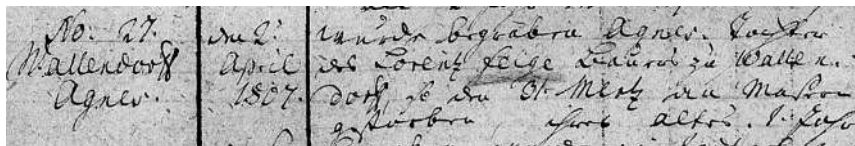 No: 27.
Wallendorff
Agnes.
den 2t
April
1807.
wurde begraben Agnes. Tochter
des Lorentz Feige Bauers zu Wallen-
dorff, so den 31. Mertz an Masern
gestorben, ihres alters. 1. Jahr